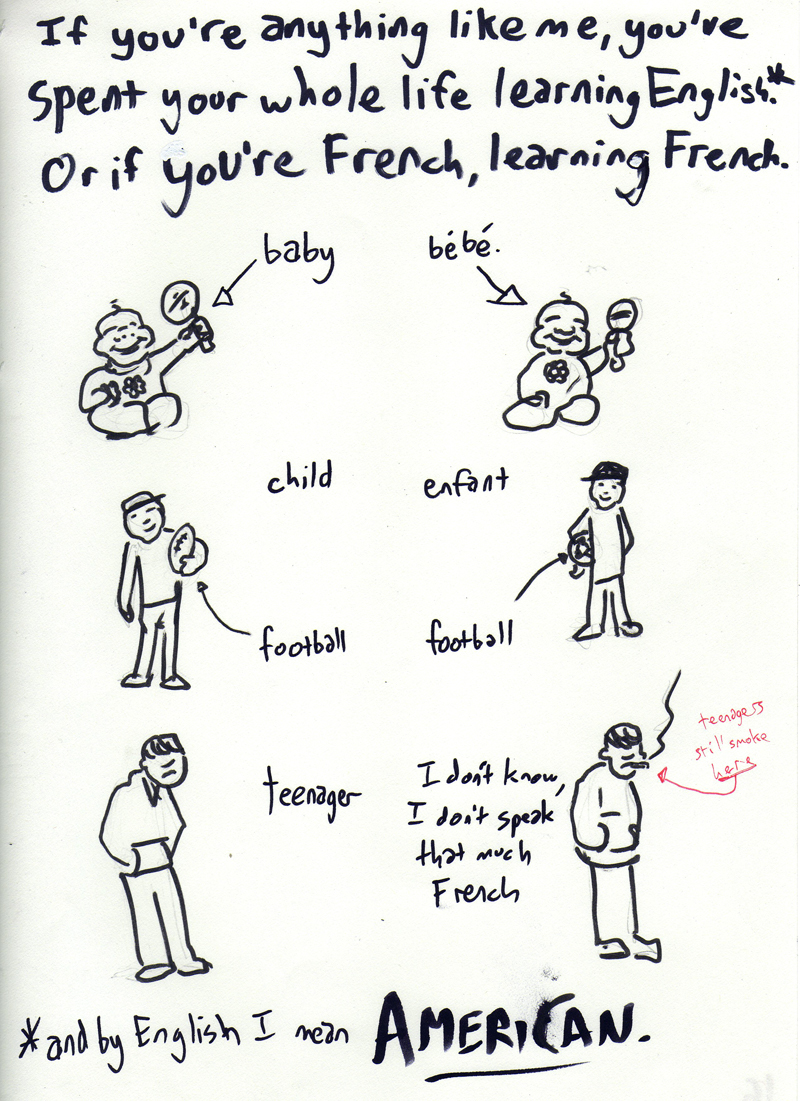 If you're anything like me, you've
spent your whole life learning English.*
Or if you're French, learning French.
baby
bébé.
child
enfant
football
football
teenager
I don't know,
I don't speak
that much
French
teenagers
still smoke
here
*and by English I mean AMERICAN.